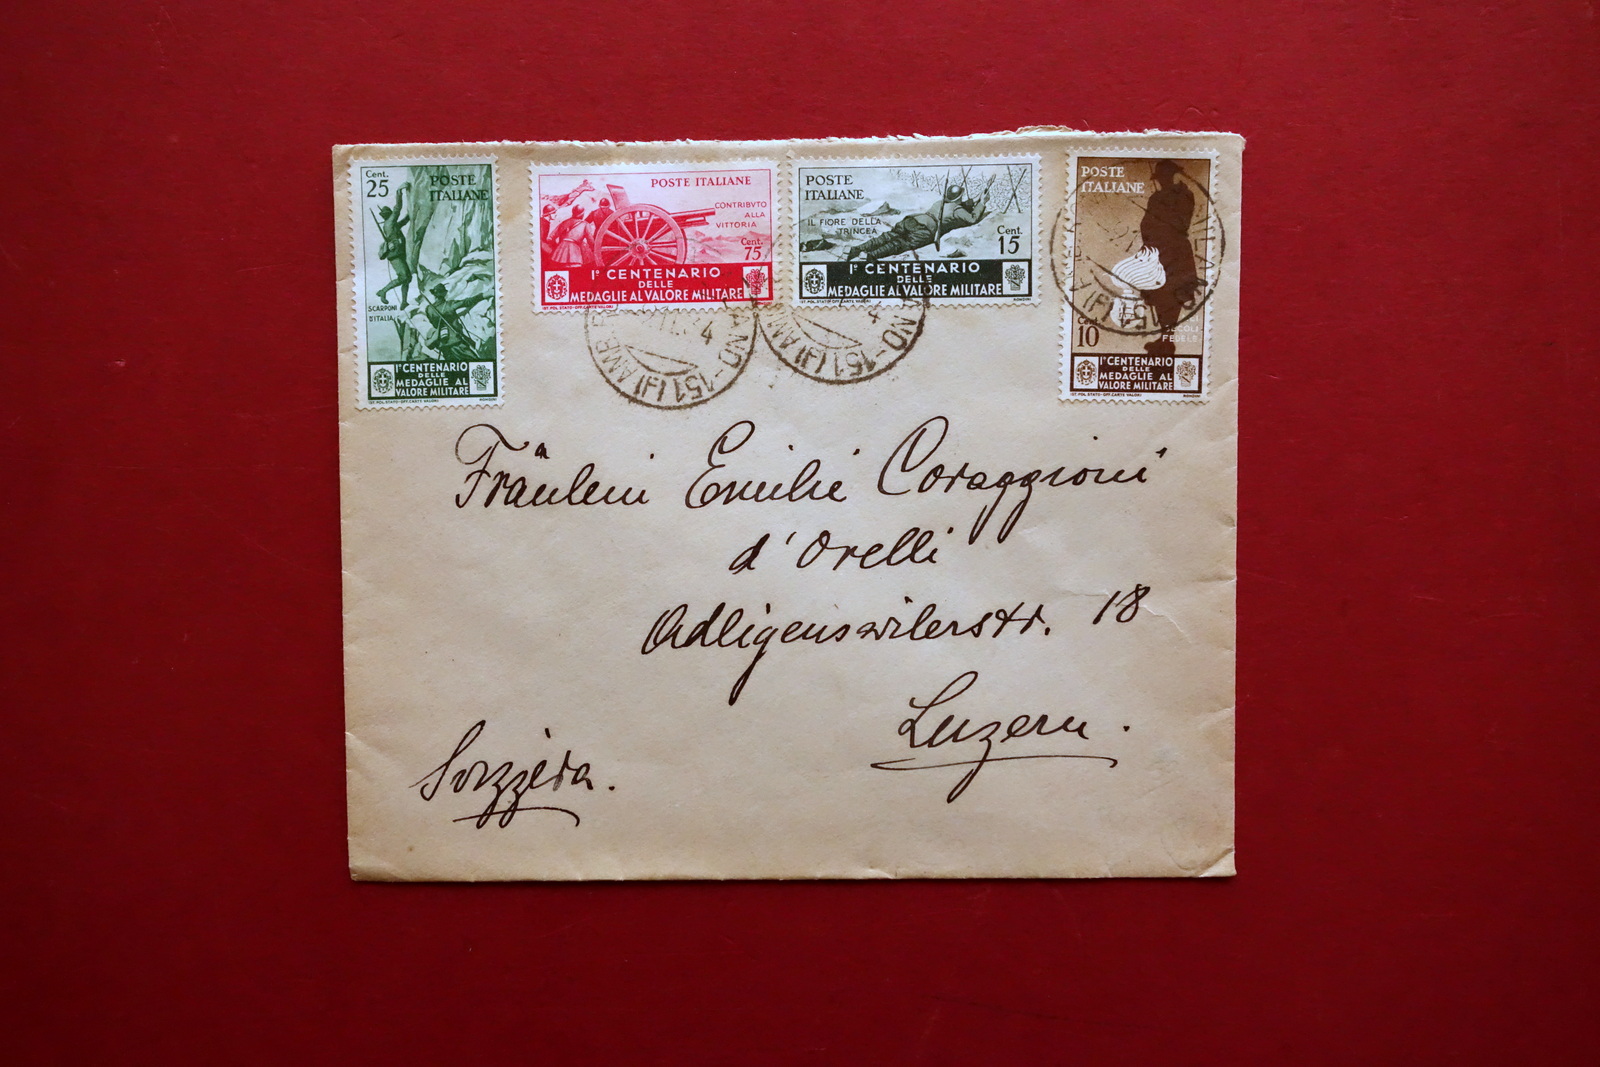 Cent.
25
POSTE
ITALIANE
SCARPONI
D'ITALIA
1º CENTENARIO
DELLE
MEDAGLIE AL
VALORE MILITARE
IST. POL. STATO - OFF. CARTE VALORI
POSTE ITALIANE
CONTRIBVTO
ALLA
VITTORIA
Cent.
75
1º CENTENARIO
DELLE
MEDAGLIE AL VALORE MILITARE
IST. POL. STATO - OFF. CARTE VALORI
POSTE
ITALIANE
IL FIORE DELLA
TRINCEA
Cent.
15
1º CENTENARIO
DELLE
MEDAGLIE AL VALORE MILITARE
IST. POL. STATO - OFF. CARTE VALORI
POSTE
ITALIANE
10
FEDELE
1º CENTENARIO
DELLE
MEDAGLIE AL
VALORE MILITARE
IST. POL. STATO - OFF. CARTE VALORI
Fräulein Emilie Coraggioni
d'Orelli
Adligenswilerstr. 18
Luzern.
Svizzera.